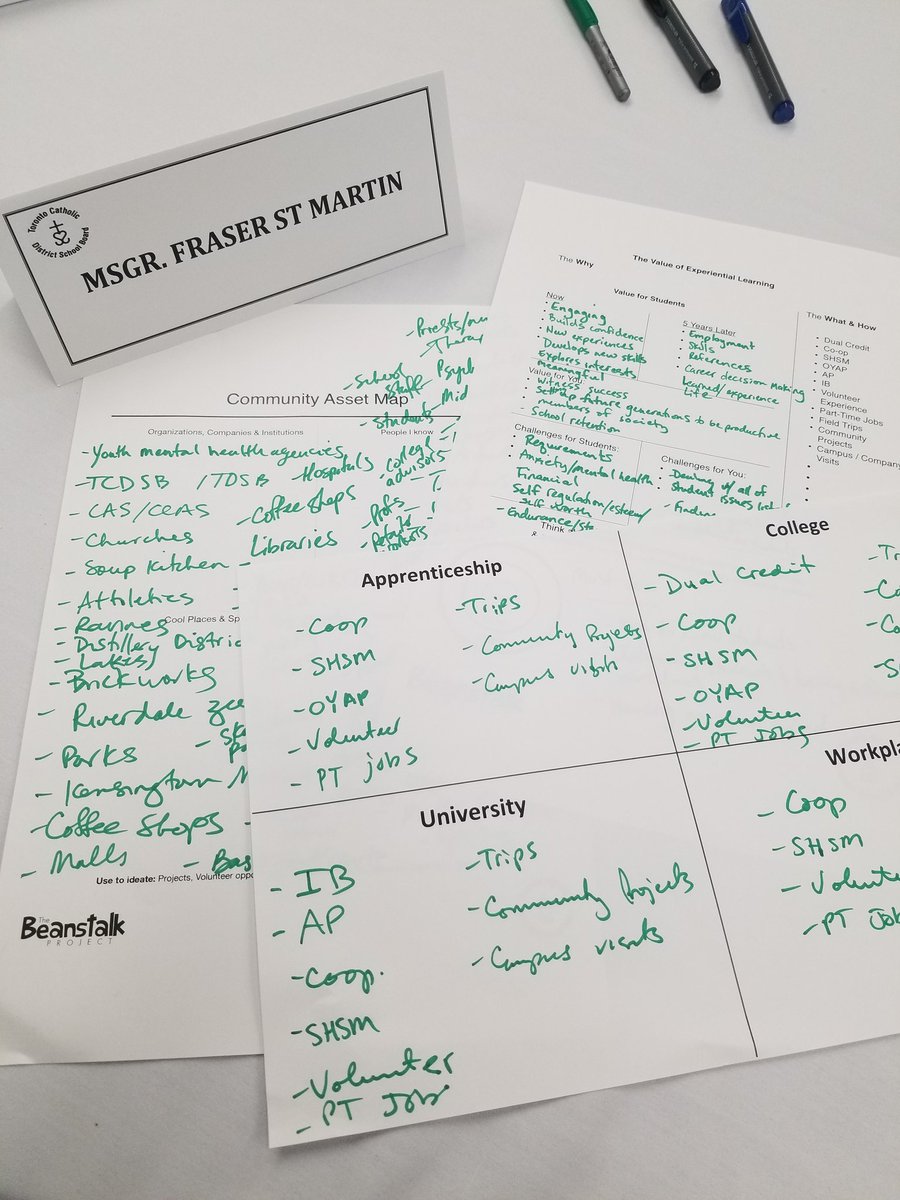 Toronto Catholic
District School Board
MSGR. FRASER ST MARTIN
The Why
The Value of Experiential Learning
Value for Students
Now
• Engaging
• Builds confidence
• New experiences
• Develops new skills
Explores interests
meaningful
5 Years Later
• Employment
• Skills
• References
• Career decision making
learned/experience
Life
Value for You:
• Witness success
• Setting up future generations to be productive
members of society
- School retention
Challenges for Students:
• Requirements
• Anxiety/mental health
Financial
Self regulation/esteem/
self worth
- Endurance/
Challenges for You:
• Dealing w/ all of
• Student issues
Think
The What & How
• Dual Credit
• Co-op
• SHSM
• OYAP
• AP
• IB
• Volunteer
Experience
• Part-Time Jobs
• Field Trips
• Community
Projects
• Campus / Company
Visits
Community Asset Map
Organizations, Companies & Institutions
- Youth mental health agencies
- TCDSB / TDSB
- Hospitals
- CAS/CCAS
- Coffee shops
- Churches
- Soup kitchen
- Libraries
- Athletics
People I know
- Priests/
- School
staff
- Students
college
advisors
- Profs
Cool Places & Sp
- Ravines
- Distillery Distric
- Lakes
- Brickworks
- Riverdale
- Parks
- Kensington M
- Coffee Shops
- Malls
- Bas
Use to ideate: Projects, Volunteer oppo
The
Beanstalk
PROJECT
Apprenticeship
- Coop
- SHSM
- OYAP
- Volunteer
- PT jobs
- Trips
- Community Projects
- Campus visits
College
- Dual Credit
- Coop
- SHSM
- OYAP
- Volunteer
- PT Jobs
University
- IB
- AP
- Coop.
- SHSM
- Volunteer
- PT Jobs
- Trips
- Community Projects
- Campus visits
Workpla
- Coop
- SHSM
- Volunte
- PT Jo